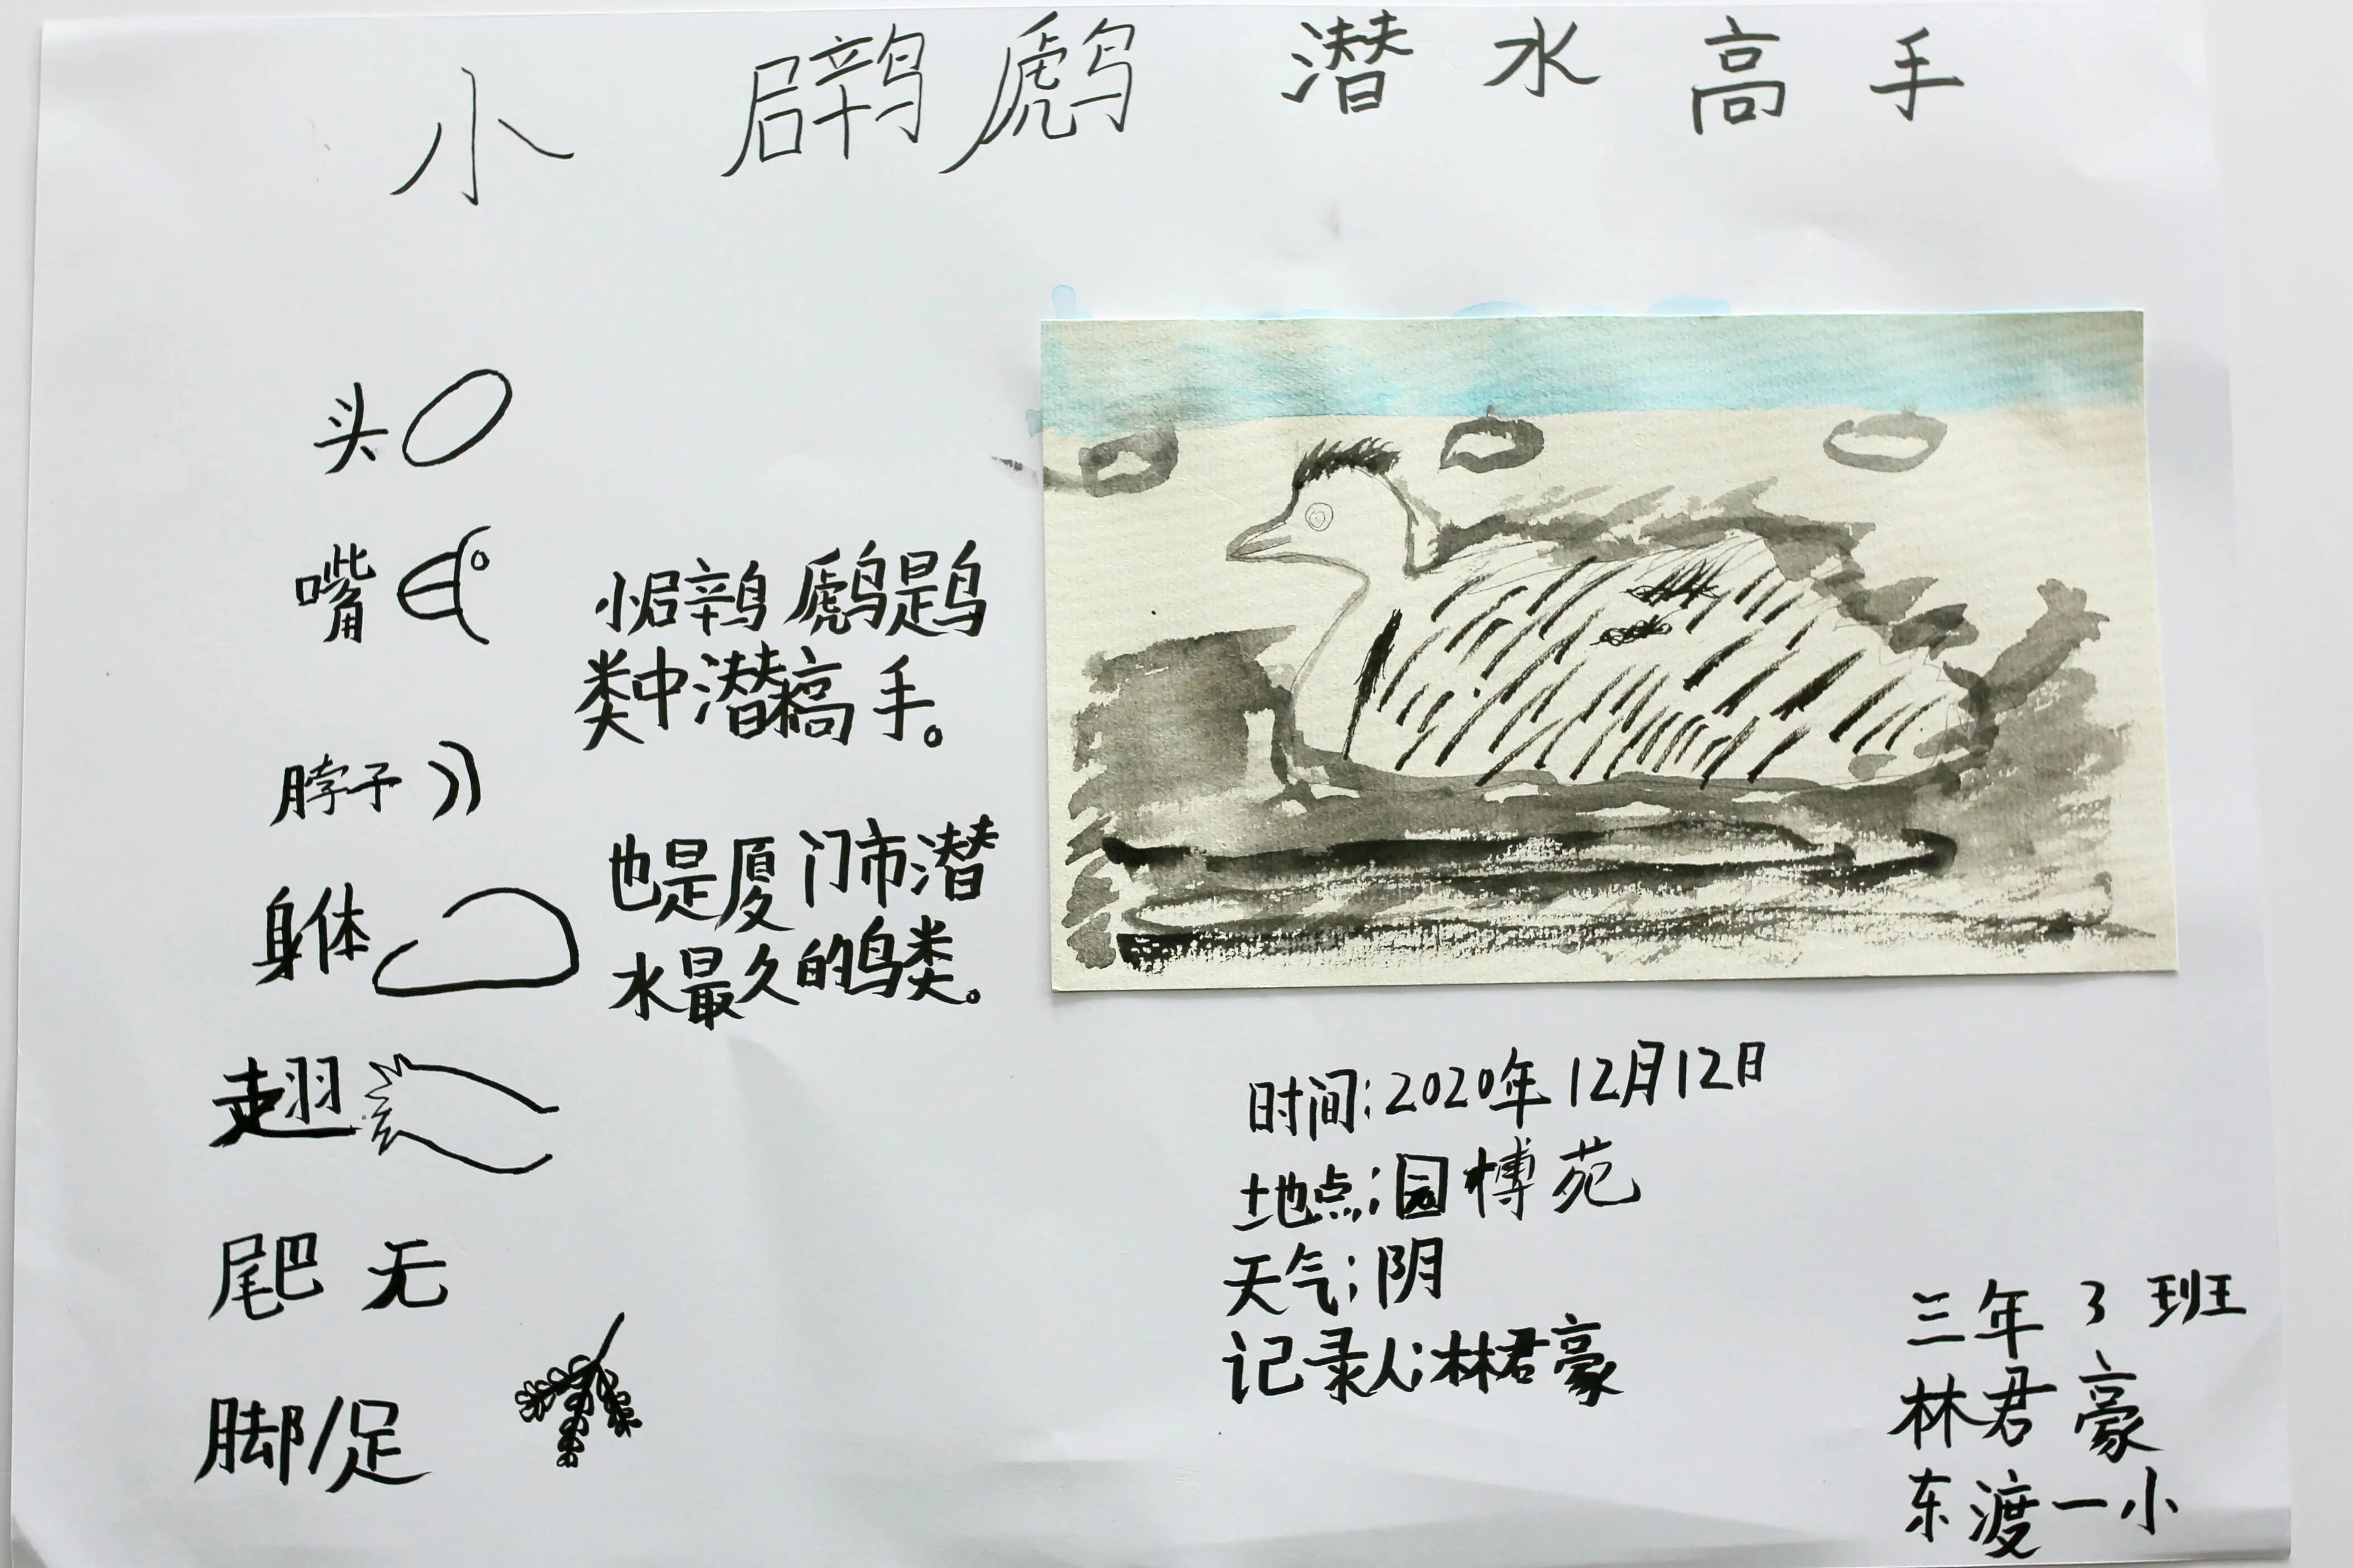 小 䴙䴘 潜水高手
头
嘴
脖子
身体
翅
尾巴 无
脚/足
小䴙䴘是鸟
类中潜水高手。
也是厦门市潜
水最久的鸟类。
时间:2020年12月12日
地点:园博苑
天气:阴
记录人:林君豪
三年3班
林君豪
东渡一小